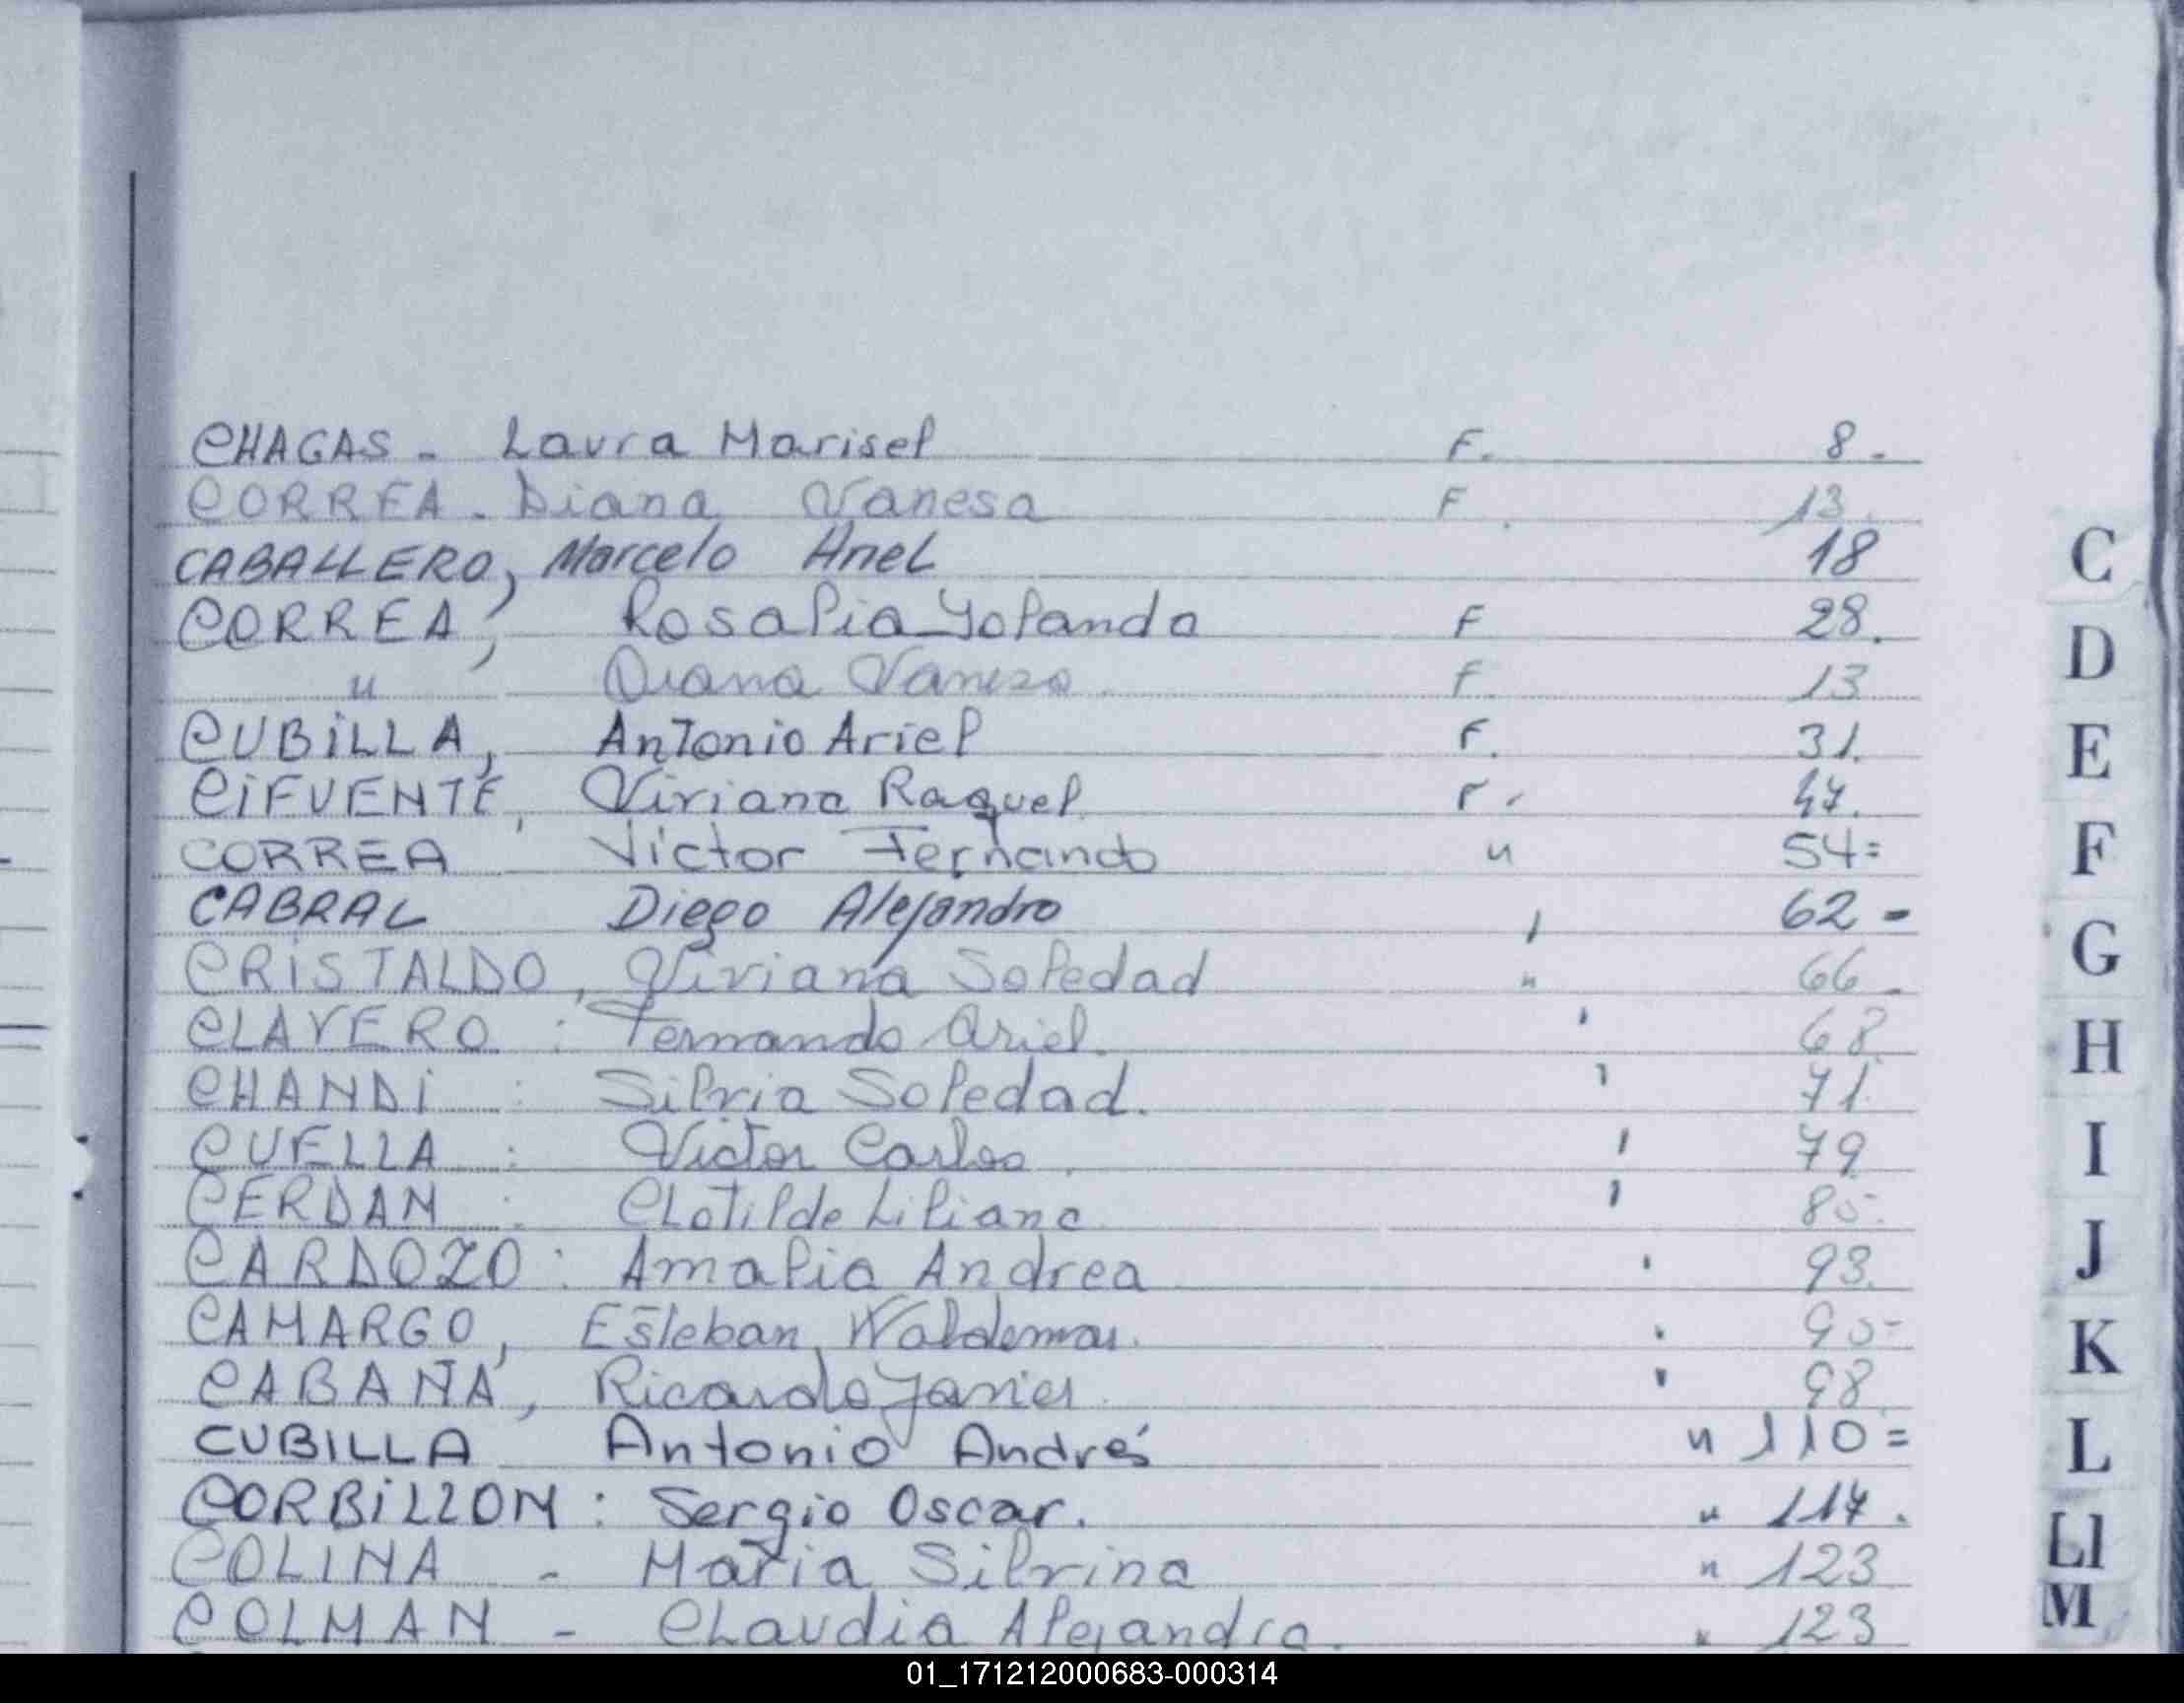 CHAGAS - Laura Marisel F. 8.
CORREA - Diana Vanesa F. 13
CABALLERO, Marcelo Ariel 18
CORREA, Rosalia Yolanda F 28.
" Diana Vanesa F. 13
CUBILLA, Antonio Ariel F. 31.
CIFUENTE, Viviana Raquel F. 47.
CORREA Victor Fernando " 54=
CABRAL Diego Alejandro " 62 -
CRISTALDO, Viviana Soledad " 66 -
CLAVERO : Fernando Ariel. " 68
CHANDI : Silvia Soledad. " 71.
CUELLA : Victor Carlos " 79
CERDAN : Clotilde Liliana " 85.
CARDOZO : Amalia Andrea " 93.
CAMARGO, Esteban Waldemar. " 95-
CABAÑA, Ricardo Javier " 98
CUBILLA Antonio Andrés " 110=
CORBILLON : Sergio Oscar. " 117.
COLINA - Maria Silvina " 123
COLMAN - Claudia Alejandra. " 123
C
D
E
F
G
H
I
J
K
L
Ll
M
01_171212000683-000314